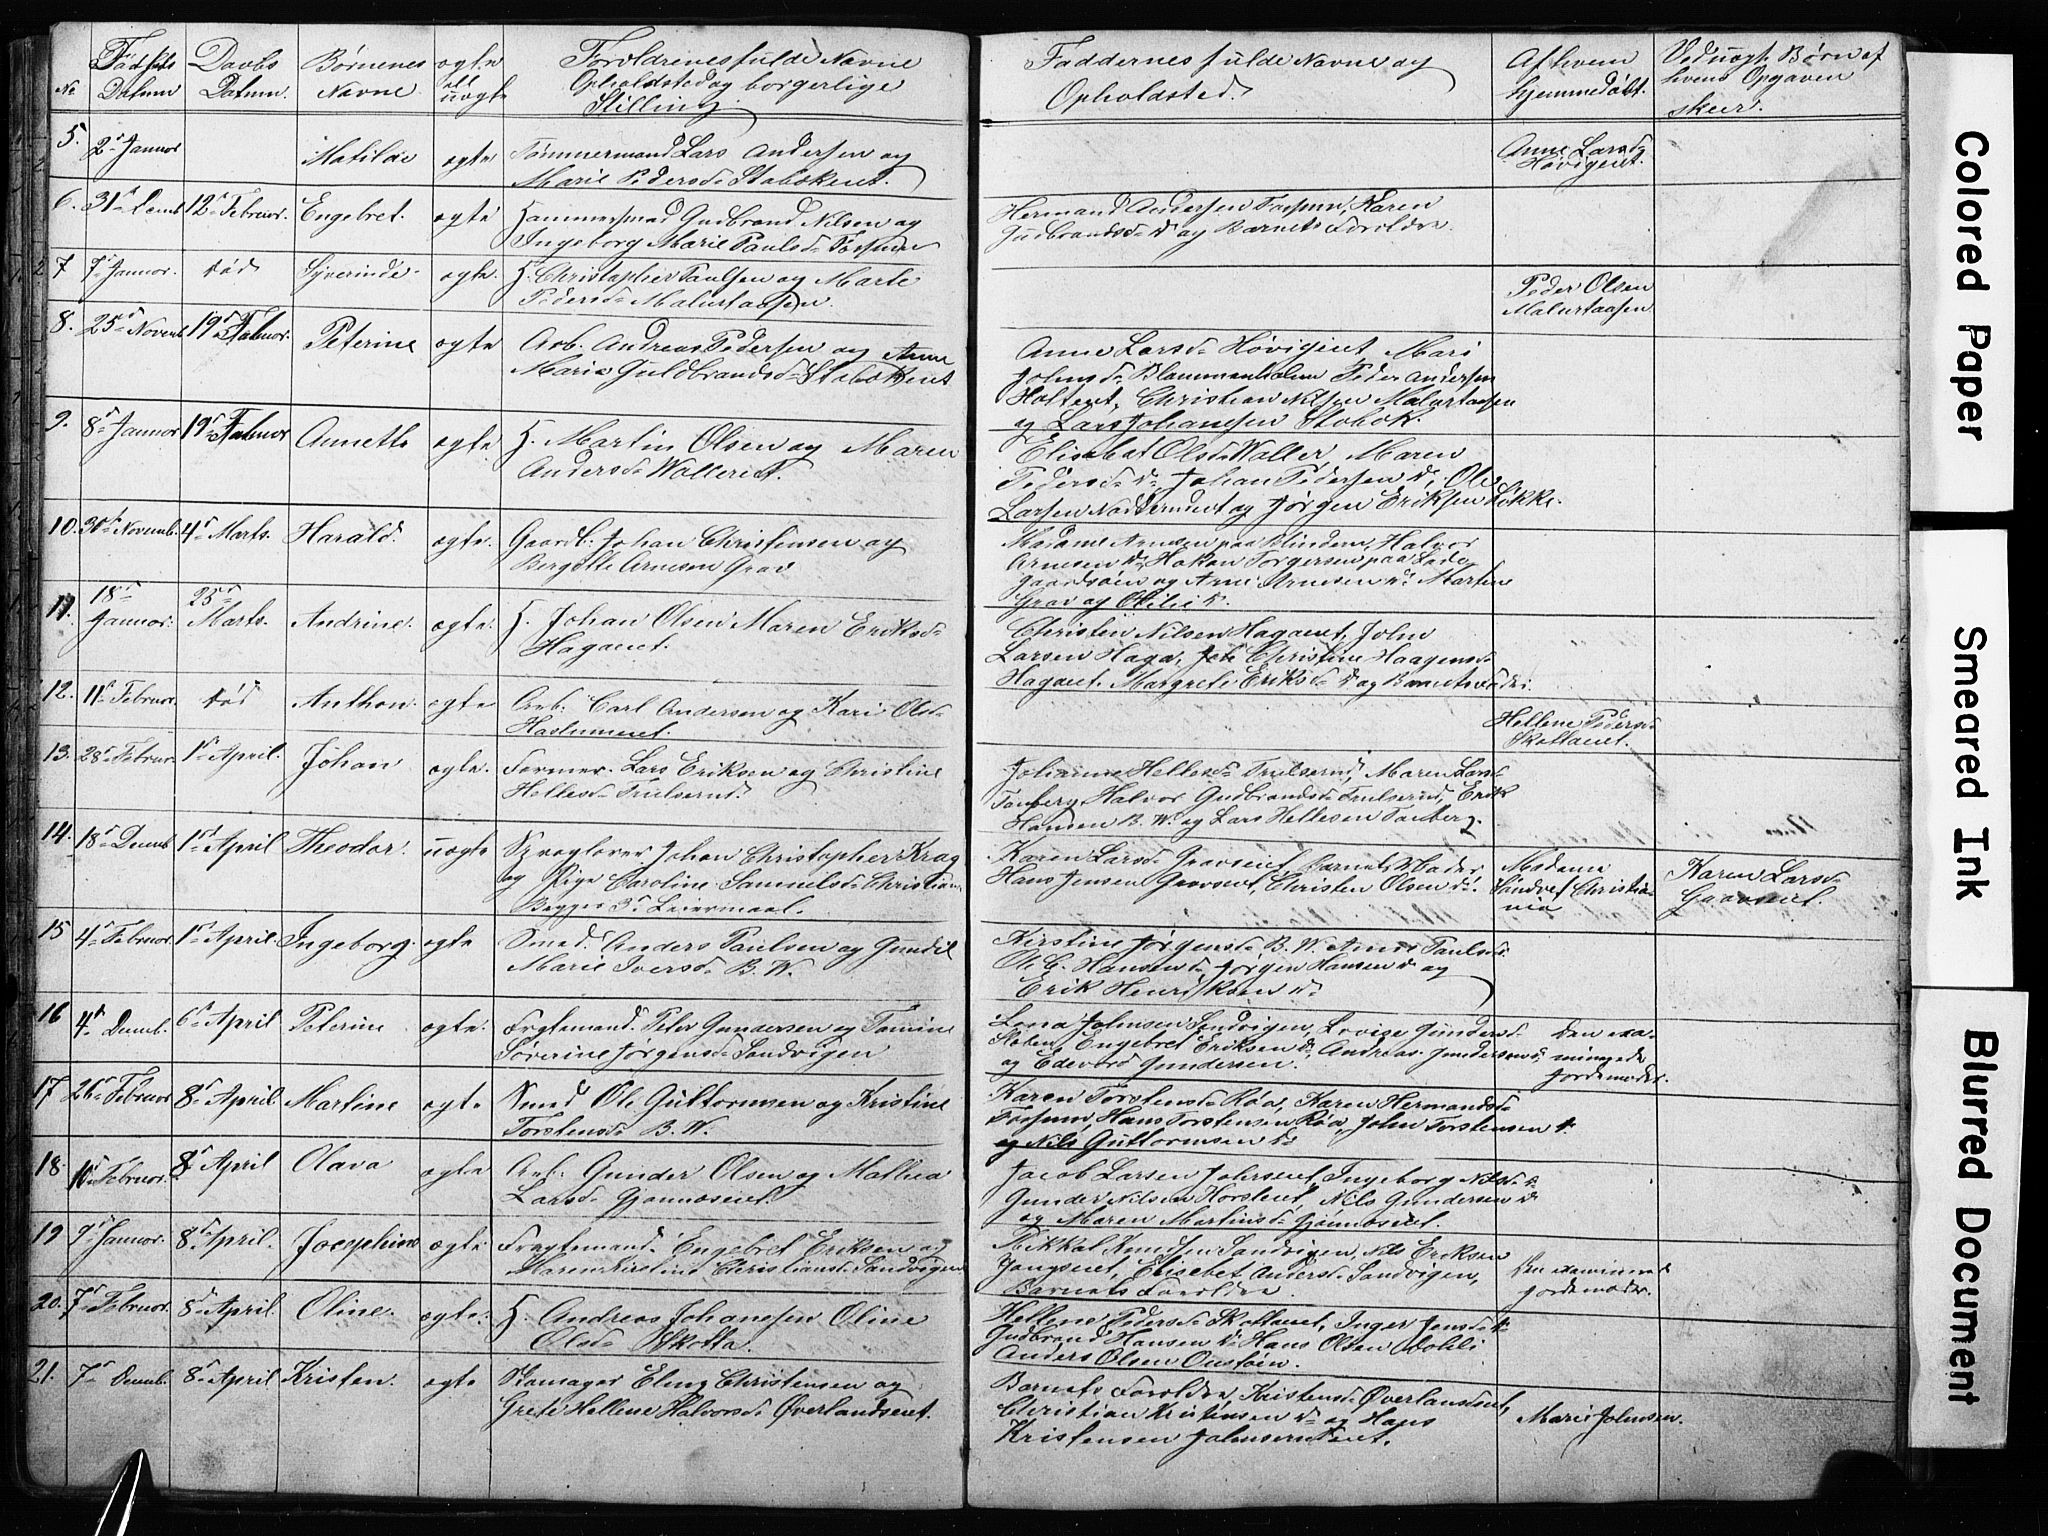 No
Fødsels Datum
Daabs Datum.
Børnenes Navne
ægte ell uægte
Forældrenes fulde Navne
Opholdsted og borgerlige
Stilling
Faddernes fulde Navne og
Opholdsted.
Af hvem
hjemmedøbt.
Ved uægte Børn af
hvem Opgaven
skeer.
5. 2d Januar Mathilde ægte Tømmermand Lars Andersen og
Marie Pedersd. Stabækeiet.
Anne Larsd.
Høvigeiet.
6. 31te Decemb. 12te Februar. Engebret. ægte Hammersmed Gudbrand Nilsen og
Ingeborg Marie Paulsd. Fossum
Hermand Andersen Fossum, Karen
Gudbrandsd. do og Barnets Forældre.
7 7de Januar. død Syverinde ægte H. Christopher Paulsen og Marte
Pedersd. Malurtaasen.
Peder Olsen
Malurtaasen
8. 25de Novemb. 19de Februar. Peterine ægte Arb. Andreas Pedersen og Anne
Marie Guldbrandsd. Stabækeiet
Anne Larsd. Høvigeiet, Mari
Johnsd. Blommenholm Peder Andersen
Holtet, Christian Nilsen Malurtaasen
og Lars Johansen Stabæk.
9. 8de Januar 19de Februar Annette ægte H. Martin Olsen og Maren
Andersd. Walleriet.
Elisabet Olsd. Waller, Maren
Pedersd. do, Johan Pedersen do, Ole
Larsen Nadderudeiet og Jørgen Eriksen Løkke.
10. 30te Novemb. 4de Marts. Harald. ægte. Gaardb. Johan Christensen og
Bergitte Arnesen Grav
Madame Arnesen paa Blindern, Halvor
Arnesen do, Hakon Torgersen paa Lade
gaardsøen og Arne Arnesen do Martin
Grav og Otilie do.
11. 18de Januar. 25de Marts. Andrine. ægte. H. Johan Olsen Maren Eriksd.
Hagaeiet.
Christen Nilsen Hagaeiet, John
Larsen Haga, Christine Haagensd.
Hagaeiet. Margrete Eriksd. do og Barnets Fader.
12. 11te Februar. død Anthon. ægte Arb. Carl Andersen og Kari Olsd.
Haslumeiet.
Hellene Pedersd.
Skottaeiet.
13. 28de Februar. 1ste April. Johan ægte. Former. Lars Eriksen og Christine
Hellesd. Trulserud.
Johanne Hellesd. Trulserud, Maren Larsd.
Tanberg Halvor Gudbrandsd. Trulserud, Erik
Hansen B. W. og Lars Hellesen Tanberg.
14. 18de Decemb 1ste April Theodor. uægte Johan Christopher Krag
og Pige Caroline Samuelsd. Christian.
Begges 3de Leiermaal.
Karen Larsd. Gravseiet, Barnets Moder,
Hans Jensen Gravseiet, Christen Olsen do.
Madame
Sundvef Christia-
nia
Karen Larsd.
Gravseiet.
15 4de Februar. 1ste April. Ingeborg. ægte Smed. Anders Paulsen og Gunild
Marie Iversd. B. W.
Kirstine Jørgensd. B. W. Anne Paulsd.
Ole C. Hansen do, Jørgen Hansen do og
Erik Henriksen do
16 4de Decemb. 6te April Peterine ægte. Fragtemand. Peter Gundersen og Tomine
Severine Jørgensd. Sandvigen
Lena Johnsen Sandvigen, Lovise Gundersd.
Staben, Engebret Eriksen do, Andreas Gundersen do,
og Edevard Gundersen.
Den exa-
minerede
Jordemoder.
17 26de Februar 8de April. Martine ægte Smed Ole Guttormsen og Kristine
Torstensd. B. W.
Karen Torstensd. Røa, Karen Hermandsd.
Fossum, Hans Torstensen Røa, John Torstensen do.
og Nils Guttormsen do
18 10de Februar. 8de April Olava ægte Arb. Gunder Olsen og Mathea
Larsd. Gjønnæseiet.
Jacob Larsen Johnseiet, Ingeborg Nilsd. do
Gunder Nilsen Horsleiet, Nils Gundersen do
og Maren Martinsd. Gjønnæseiet.
19 9de Januar. 8de April. Josephine ægte. Fragtemand. Engebret Eriksen og
Maren Kirstine Christiansd. Sandvigen
Mikkal Knudsen Sandvigen, Nils Eriksen
Jongseiet, Elisebet Andersd. Sandvigen,
Barnets Forældre.
Den examinerede
Jordemoder.
20. 7de Februar. 8de April. Oline. ægte. H. Andreas Johansen Oline
Olsd. Skotta.
Hellene Pedersd. Skottaeiet, Inger Jensd. do
Gudbrand Hansen do Hans Olsen Dohli
Anders Olsen Oustøen.
21. 7de Decemb. 8de April Kristen. ægte Skomager Eling Christensen og
Grete Hellene Halvorsd. Øverlandseiet.
Barnets Forældre, Kristensd. Øverlandseiet,
Christian Kristensen do og Hans
Kristensen Johnsrudeiet.
Marie Johnsen.
Colored Paper
Smeared Ink
Blurred Document